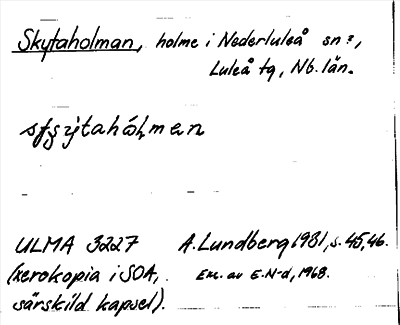 Skytaholman, holme i Nederluleå sn?,
Luleå tg, Nb. län.
ULMA 3227 A. Lundberg 1931, s. 45, 46.
(xerokopia i SOA, Exc. av E. N-d, 1968.
särskild kapsel).